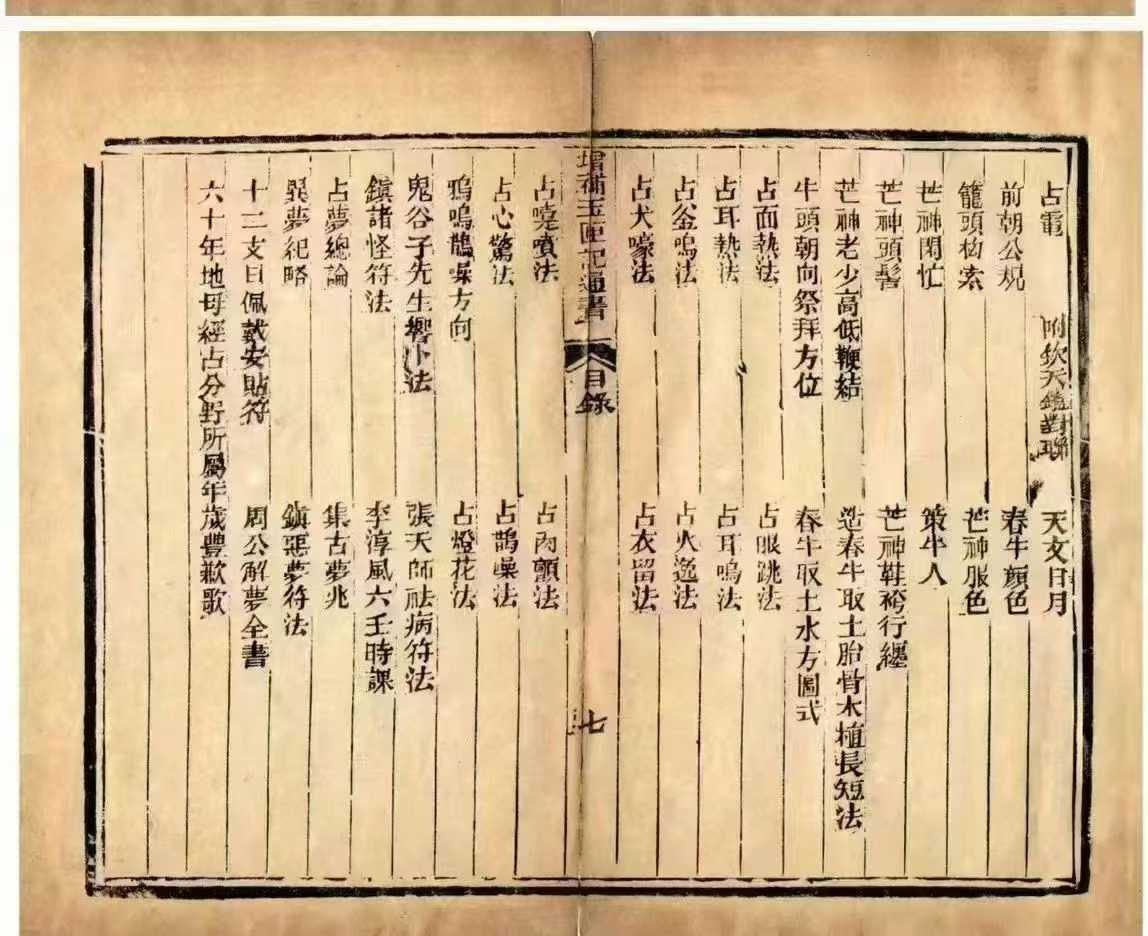 占電　附欽天鑑對聯　天文日月
前朝公規　春牛顏色
籠頭构索　芒神服色
芒神閑忙　策牛人
芒神頭髻　芒神鞋袴行纏
芒神老少高低鞭結　造春牛取土胎骨木植長短法
牛頭朝向祭拜方位　春牛取土水方圖式
占面熱法　占眼跳法
占耳熱法　占耳鳴法
占釜鳴法　占火逸法
占犬嚎法　占衣留法
增補玉匣記通書　目錄　七
占嚏噴法　占肉顫法
占心驚法　占鵲噪法
鴉鳴鵲噪方向　占燈花法
鬼谷子先生響卜法　張天師祛病符法
鎮諸怪符法　李淳風六壬時課
占夢總論　集古夢兆
異夢紀略　鎮惡夢符法
十二支日佩戴安貼符　周公解夢全書
六十年地母經占分野所屬年歲豐歉歌